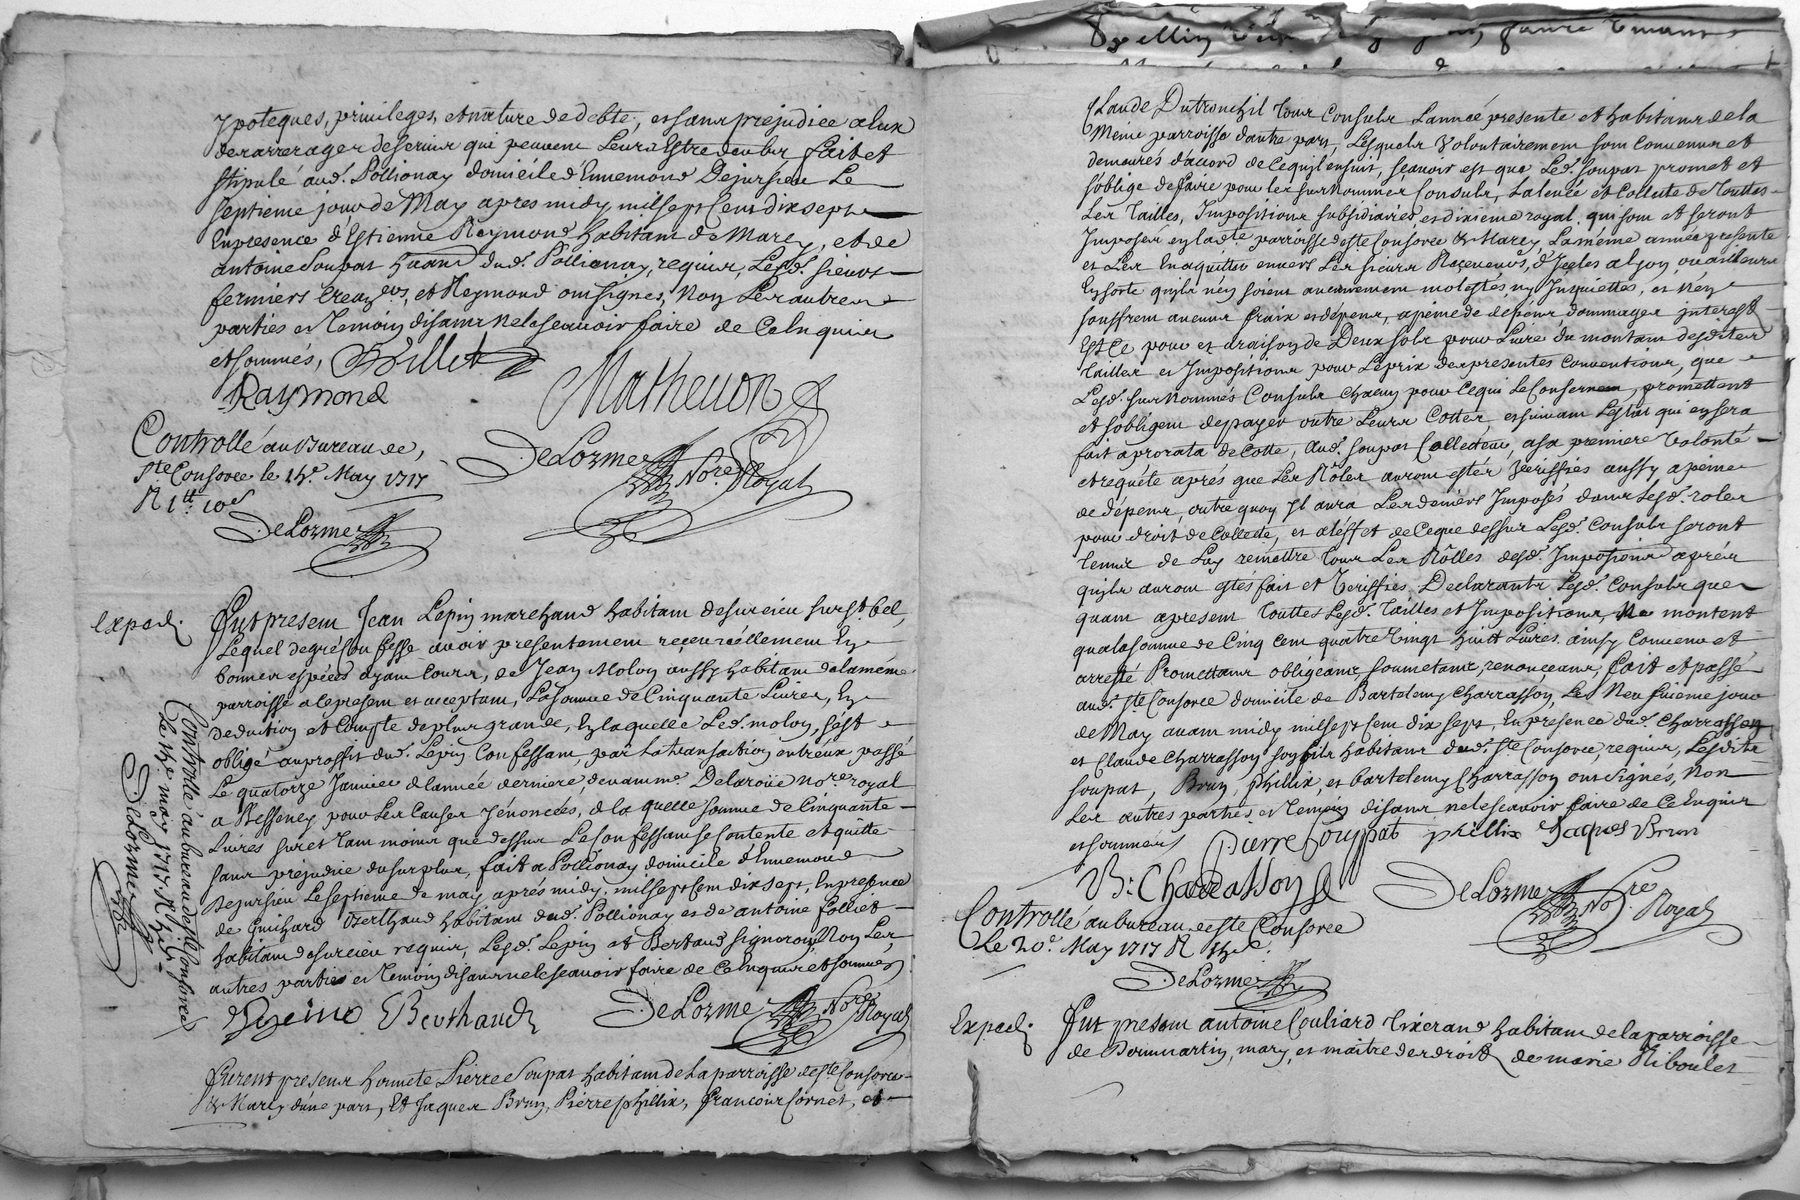 ypoteques, privileges, et nature de debte, et sans prejudice a eux
des arrerages des servis qui peuvent leurs estre deubs fait et
stipulé aud. Pollionay domicile d'Ennemond Dejursieu le
septieme jour de May apres midy mil sept cent dix sept
En presence d'Estienne Reymond habitant de Marcy, et de
antoine Soupat grand dud. Pollionay, requis, Lesd. sieurs
fermiers et Reymond ont signés, Non Les autres
parties et temoin disants ne le scavoir faire de ce Enquis
et sommés, Billet
Raymond
Mathevon
Controllé au Bureau de,
Ste Consorce le 14e May 1717
R 1tt 10s
DeLorme Nore Royal
DeLorme
Exped.
Fut present Jean Lepin marchand habitant de Surcieu Sur St bel,
Lequel de gré Confesse avoir presentement reçeu reéllement En
bonnes espéces ayant Cours, de Jean Molon aussy habitant de la méme
parroisse a ce present et acceptant, La Somme de Cinquante Livres, En
deduction et Compte de plus grande, En laquelle Led. molon, s'ést
obligé au proffit dud. Lepin Confessant, par la transaction entreux passé
Le quatorze Janvier de l'année derniere, devant me. Delaroüe Nore. royal
a Besseney pour Les Causes y énoncées, de la quelle somme de Cinquante
Livres sur et tant moins que dessus Le Confessant se Contente et quitte
sans prejudice du surplus, fait a Pollionay domicile d'Ennemond
Dejursieu Le septieme de may, aprés midy, mil sept Cent dix sept, En presence
de Guichard Berthaud habitant dud. Pollionay et de antoine folliet
habitant de Surcieu requis, Lesd. Lepin et Bertaud signeront Non Les
autres parties et temoin disants ne le scavoir faire de ce Enquis et sommés
Controllé au bureau de Ste Consorce
Le 14e. may 1717. R
DeLorme
Berthaud
DeLorme Nore Royal
Furent presents honnéte Pierre Soupat habitant de La parroisse de Ste Consorce
& Marcy d'úne part, Et Jaques Brun, Piérre phillix, francois Cornet, et
Claude Dutronchil tous Consuls L'anneé presente et habitants de la
Meme parroisse d'autre part, Lesquels Volontairement sont Convenus et
demeurés d'accord de Ce quil ensuit, scavoir est que, Led. soupat promet et
s'oblige de faire pour les surnommés Consuls, La levée et Collecte de Touttes
Les Tailles, Impositions subsidiaires et dixieme royal. qui sont et seront
Imposés en lad.te parroisse de Ste Consorce & Marcy La méme année presente
et Les En aquitter envers Les sieurs Reçeveurs, d'Jcelles a Lyon, ou ailleurs
En sorte quils n'en soient aucunement molestés, ny Inquiettés, et n'en
souffrent aucuns fraix et dépens, a peine de dépens dommages interest
Est Ce pour et a raison de Deux sols pour Livre du montant desdites
tailles et Impositions pour Le prix des presentes Conventions, que
Lesd. surnommés Consuls chacun pour Ce qui Le Conserne, promettent
et s'obligent de payer outre Leurs Cottes, et suivant L'estat qui en sera
fait a prorata de Cotte, Aud. soupat Collecteur, a sa premiere volonté
et requéte aprés que Les Rôles auront estés verissiés aussy a peine
de dépens, outre quoy Il aura Les deniérs Imposés dans Lesd. roles
pour droit de Collecte, et a l'éffet de Ce que dessus Lesd. Consuls seront
tenus de Luy remettre tous Les Rôlles desd. Impositions aprés
quils auront estés fait et verissiés, Declarants Lesd. Consuls que
quant a present Touttes Lesd. Tailles et Impositions, Ne montent
qua la somme de Cinq Cent quatre vingt huitt Livres. ainsy Convenu et
arresté Promettants obligeants, soumetants, renonçeants, fait et passé
aud. Ste Consorce domicile de Bartelemy Charrasson, Le Neufvieme jour
de May avant midy mil sept Cent dix sept, En presence dud. Charrasson
et Claude Charrasson son fils habitants dud. Ste Consorce, requis, Lesdits
soupat, Brun, phillix, et bartelemy Charrasson ont signés, Non
Les autres parties, et temoin disant ne le scavoir faire de ce Enquis
et sommés Pierre Souppat phillix Jaques Brun
B: Charrasson
DeLorme Nore Royal
Controllé au bureau de Ste Consorce
Le 20e. May 1717 R
DeLorme
Exped.
Fut present antoine Couliard Tixerand habitant de la parroisse
de Dommartin, mary, et maitre des droits de marie Riboulet